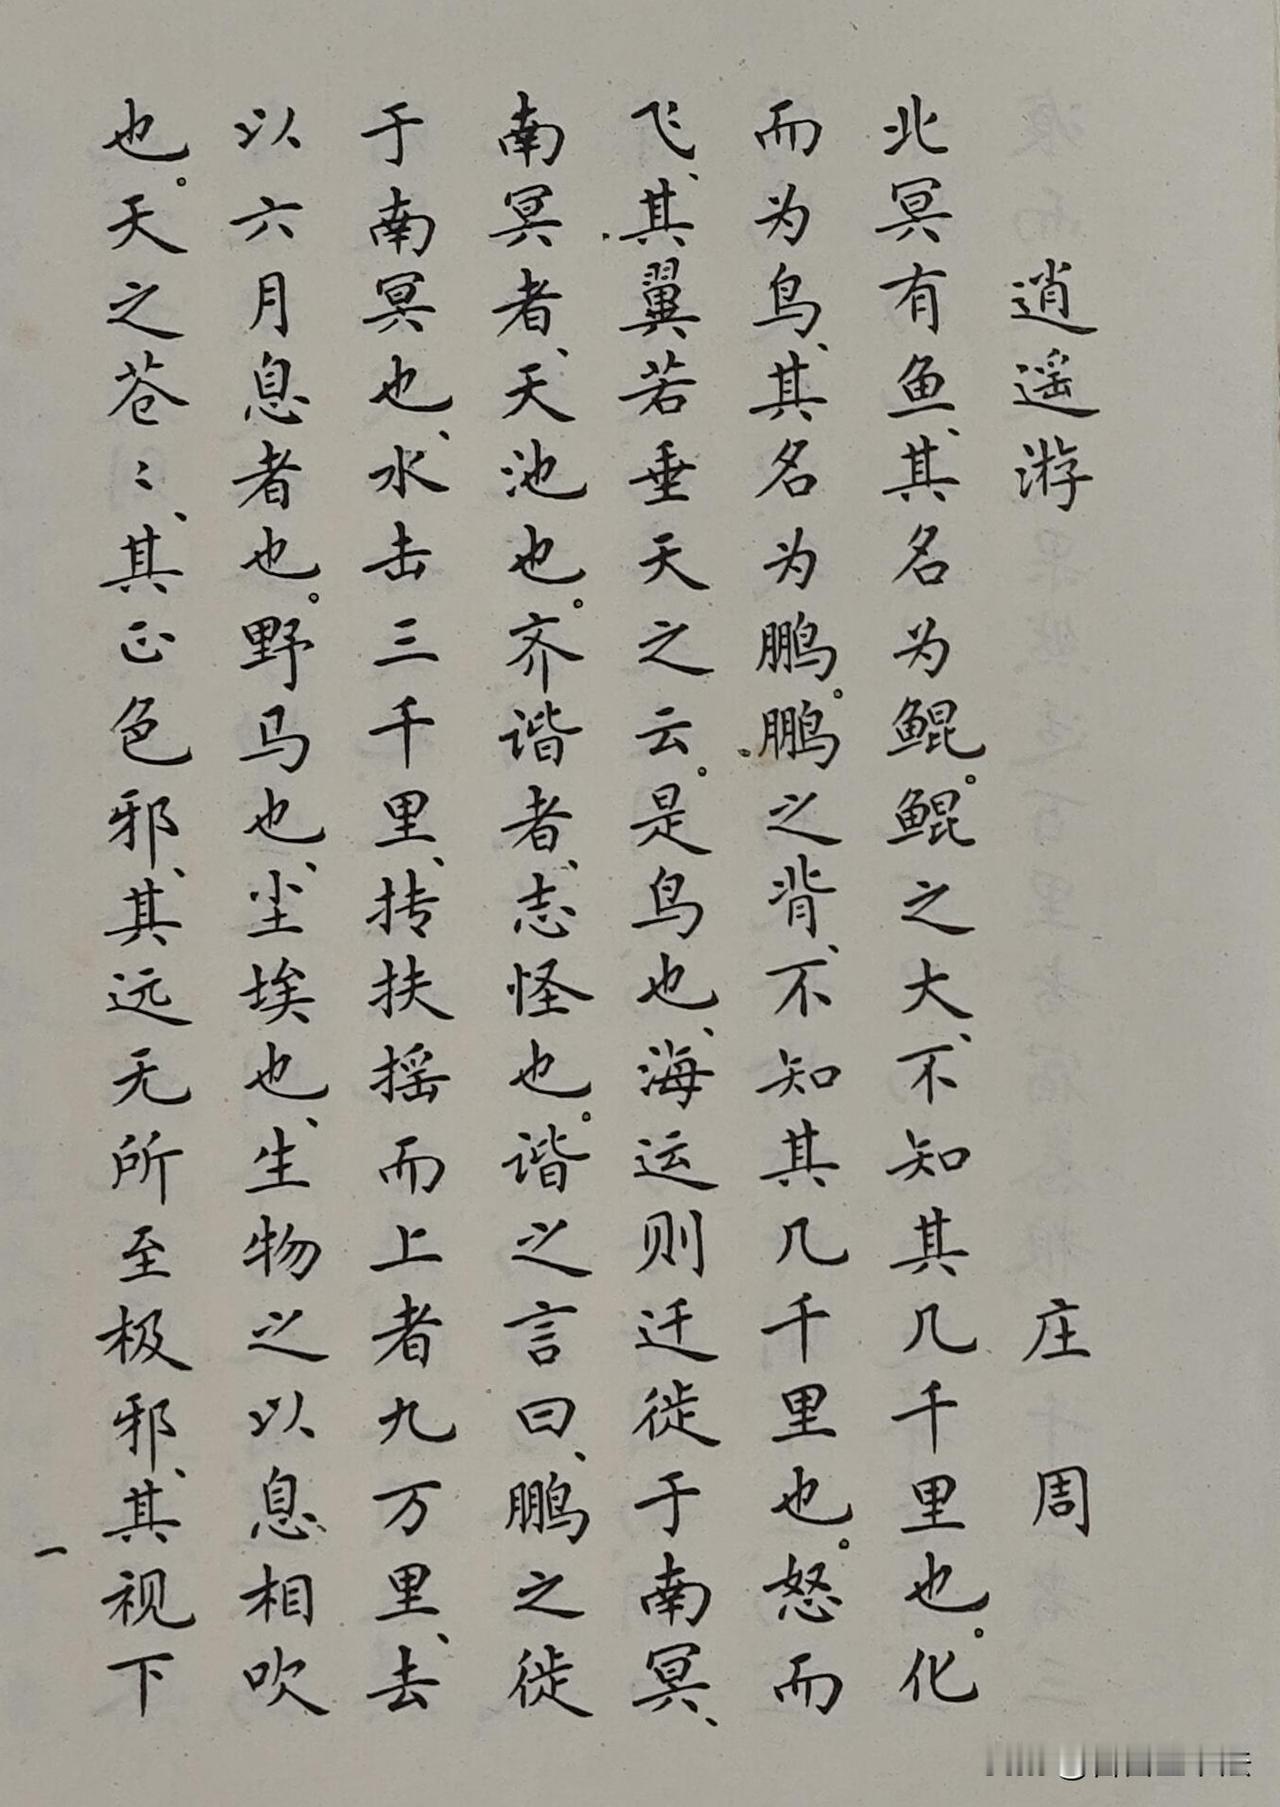 逍遥游 庄周
北冥有鱼、其名为鲲。鲲之大、不知其几千里也。化
而为鸟、其名为鹏。鹏之背、不知其几千里也。怒而
飞、其翼若垂天之云。是鸟也、海运则迁徙于南冥、
南冥者、天池也。齐谐者、志怪也。谐之言曰、鹏之徙
于南冥也、水击三千里、抟扶摇而上者九万里、去
以六月息者也。野马也、尘埃也、生物之以息相吹
也。天之苍〻、其正色邪、其远无所至极邪、其视下
一